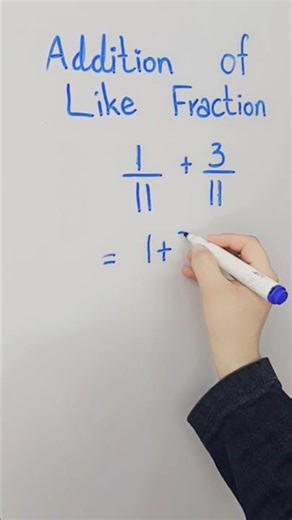 Addition of
Like Fraction
1/11 + 3/11
= 1+